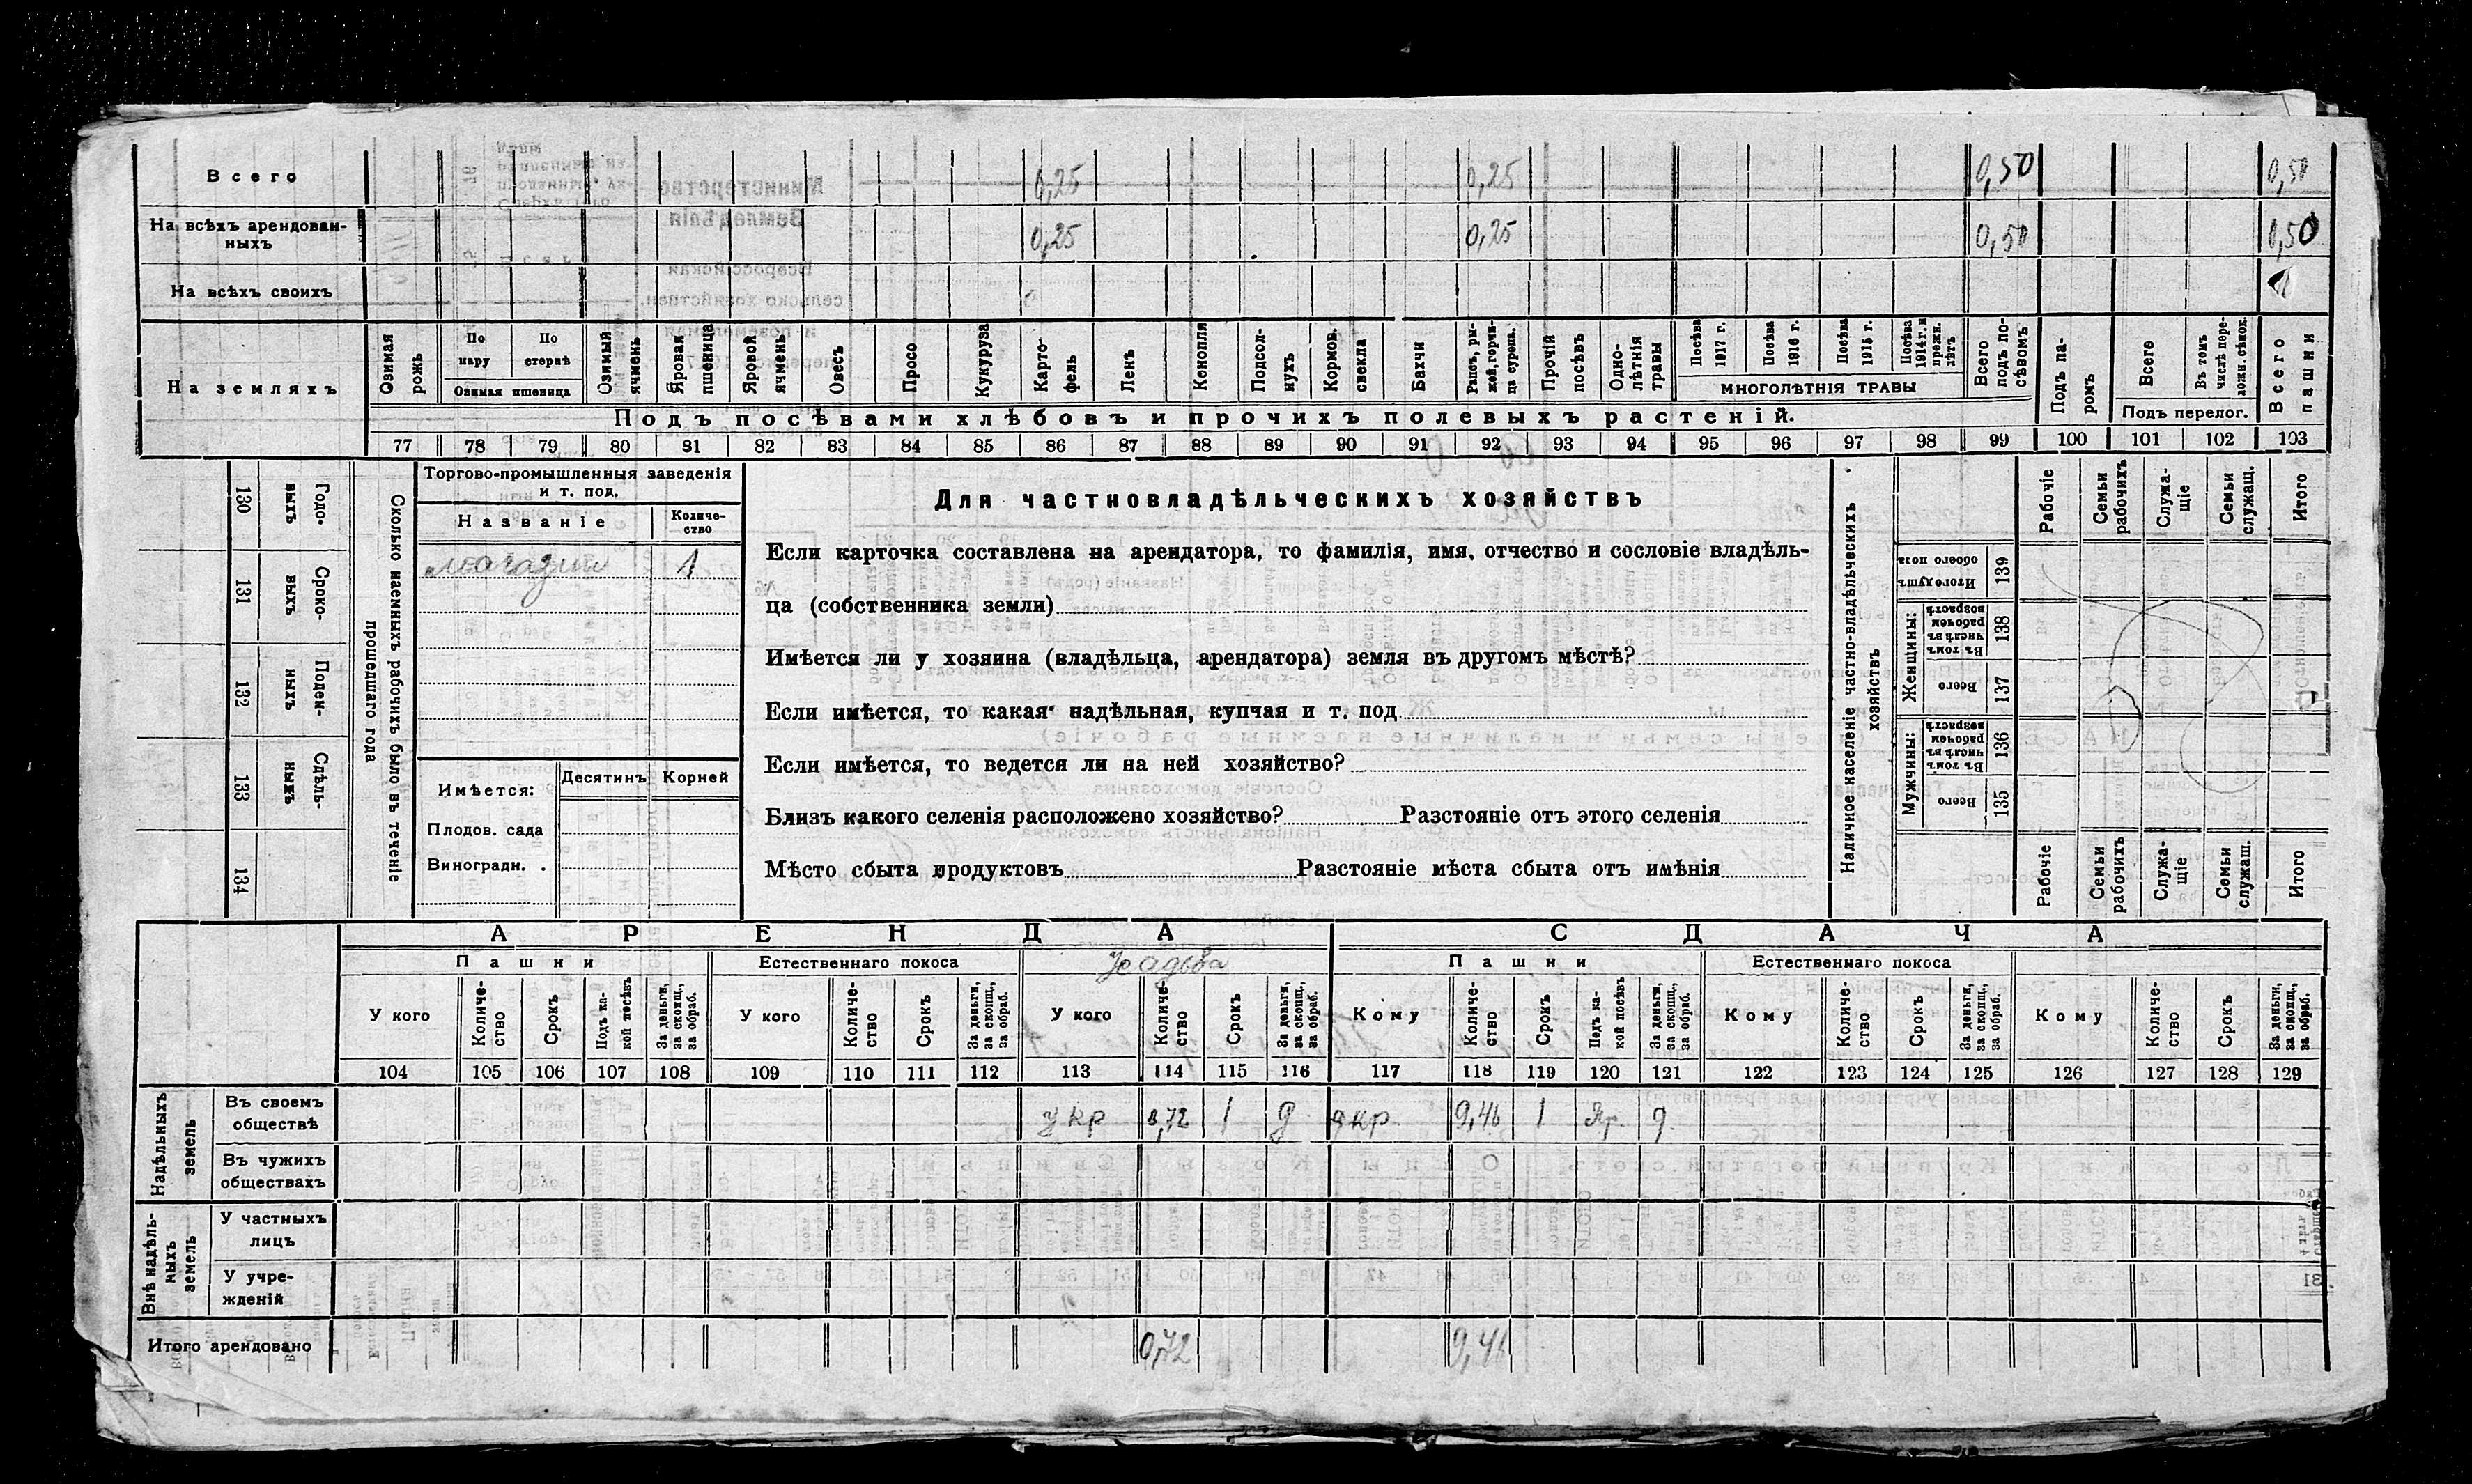 Всего 0,25 0,25 0,50 0,50
На всѣхъ арендован-
ныхъ 0,25 0,25 0,50 0,50
На всѣхъ своихъ
На земляхъ
Озимая рожь
По пару
По стернѣ
Озимая пшеница
Озимый ячмень
Яровая пшеница
Яровой ячмень
Овесъ
Просо
Кукуруза
Карто-
фель
Ленъ
Конопля
Подсол-
нухъ
Кормов. свекла
Бахчи
Рапсъ, ры-
жей, горчи-
ца сурепа.
Прочій посѣвъ
Одно-
лѣтнія травы
Посѣва 1917 г.
Посѣва 1916 г.
Посѣва 1915 г.
Посѣва 1914 г. и прежн. лѣтъ
МНОГОЛѢТНІЯ ТРАВЫ
Всего подъ по-
сѣвомъ
Подъ па-
ромъ
Всего
Въ томъ числѣ пере-
ложн. сѣнок.
Подъ перелог.
Всего пашни
Подъ посѣвами хлѣбовъ и прочихъ полевыхъ растеній.
77 78 79 80 81 82 83 84 85 86 87 88 89 90 91 92 93 94 95 96 97 98 99 100 101 102 103
130 Годо-
выхъ
131 Сроко-
выхъ
132 Поден-
ныхъ
133 Сдѣль-
ныхъ
134
Сколько наемныхъ рабочихъ было въ теченіе
прошедшаго года
Торгово-промышленныя заведенія
и т. под.
Названіе
Количе-
ство
магазин 1
Имѣется:
Десятинъ
Корней
Плодов. сада
Виноградн. .
Для частновладѣльческихъ хозяйствъ
Если карточка составлена на арендатора, то фамилія, имя, отчество и сословіе владѣль-
ца (собственника земли)
Имѣется ли у хозяина (владѣльца, арендатора) земля въ другомъ мѣстѣ?
Если имѣется, то какая· надѣльная, купчая и т. под
Если имѣется, то ведется ли на ней хозяйство?
Близъ какого селенія расположено хозяйство? Разстояніе отъ этого селенія
Мѣсто сбыта продуктовъ Разстояніе мѣста сбыта отъ имѣнія
Наличное населеніе частно-владѣльческихъ
хозяйствъ
Рабочіе
Семьи рабочихъ
Служа-
щіе
Семьи служащ.
Итого
Итого душъ
обоего пола
139
Женщины:
Въ томъ числѣ въ рабочемъ возрастѣ
138
Всего
137
Мужчины:
Въ томъ числѣ въ рабочемъ возрастѣ
136
Всего
135
Рабочіе
Семьи рабочихъ
Служа-
щіе
Семьи служащ.
Итого
АРЕНДА
СДАЧА
Пашни
Естественнаго покоса
Усадьба
Пашни
Естественнаго покоса
У кого
Количе-
ство
Срокъ
Подъ ка-
кой посѣвъ
За деньги, за скопщ., за обраб.
У кого
Количе-
ство
Срокъ
За деньги, за скопщ., за обраб.
У кого
Количе-
ство
Срокъ
За деньги, за скопщ., за обраб.
Кому
Количе-
ство
Срокъ
Подъ ка-
кой посѣвъ
За деньги, за скопщ., за обраб.
Кому
Количе-
ство
Срокъ
За деньги, за скопщ., за обраб.
Кому
Количе-
ство
Срокъ
За деньги, за скопщ., за обраб.
104 105 106 107 108 109 110 111 112 113 114 115 116 117 118 119 120 121 122 123 124 125 126 127 128 129
Надѣльныхъ
земель
Въ своемъ
обществѣ
у кр 0,72 1 д кр. 9,46 1 Яр. д
Въ чужихъ
обществахъ
Внѣ надѣль-
ныхъ
земель
У частныхъ
лицъ
У учре-
жденій
Итого арендовано 0,72 9,46